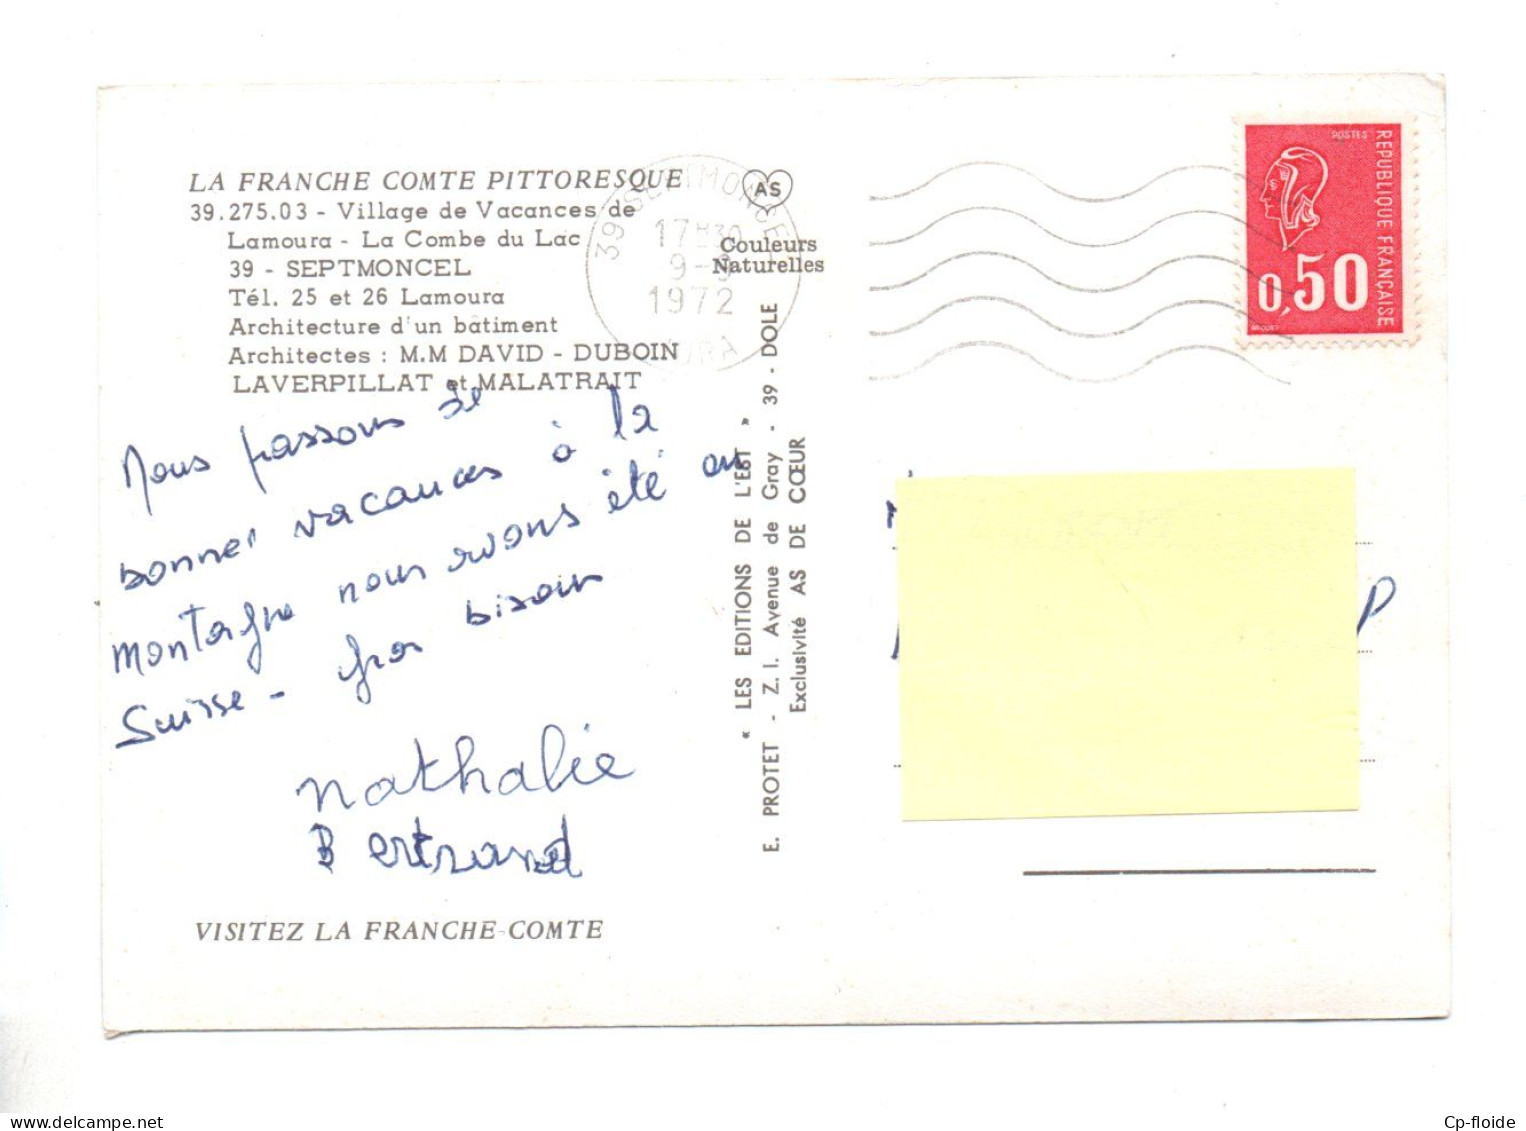 LA FRANCHE COMTE PITTORESQUE
39.275.03 - Village de Vacances de
Lamoura - La Combe du Lac
39 - SEPTMONCEL
Tél. 25 et 26 Lamoura
Architecture d'un bâtiment
Architectes : M.M DAVID - DUBOIN
LAVERPILLAT et MALATRAIT
Nous passons de
bonnes vacances à la
montagne nous avons été en
Suisse - gros bisous
Nathalie
Bertrand
VISITEZ LA FRANCHE-COMTE
39 SEPTMONCEL
17H30
9-9
1972
JURA
AS
Couleurs
Naturelles
« LES EDITIONS DE L'EST »
E. PROTET - Z. I. Avenue de Gray - 39 - DOLE
Exclusivité AS DE CŒUR
POSTES
REPUBLIQUE FRANÇAISE
0,50
P
www.delcampe.net
Cp-floide